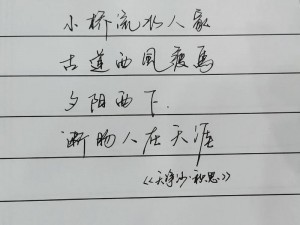 小桥流水人家
古道西风瘦马
夕阳西下.
断肠人在天涯
《天净沙·秋思》